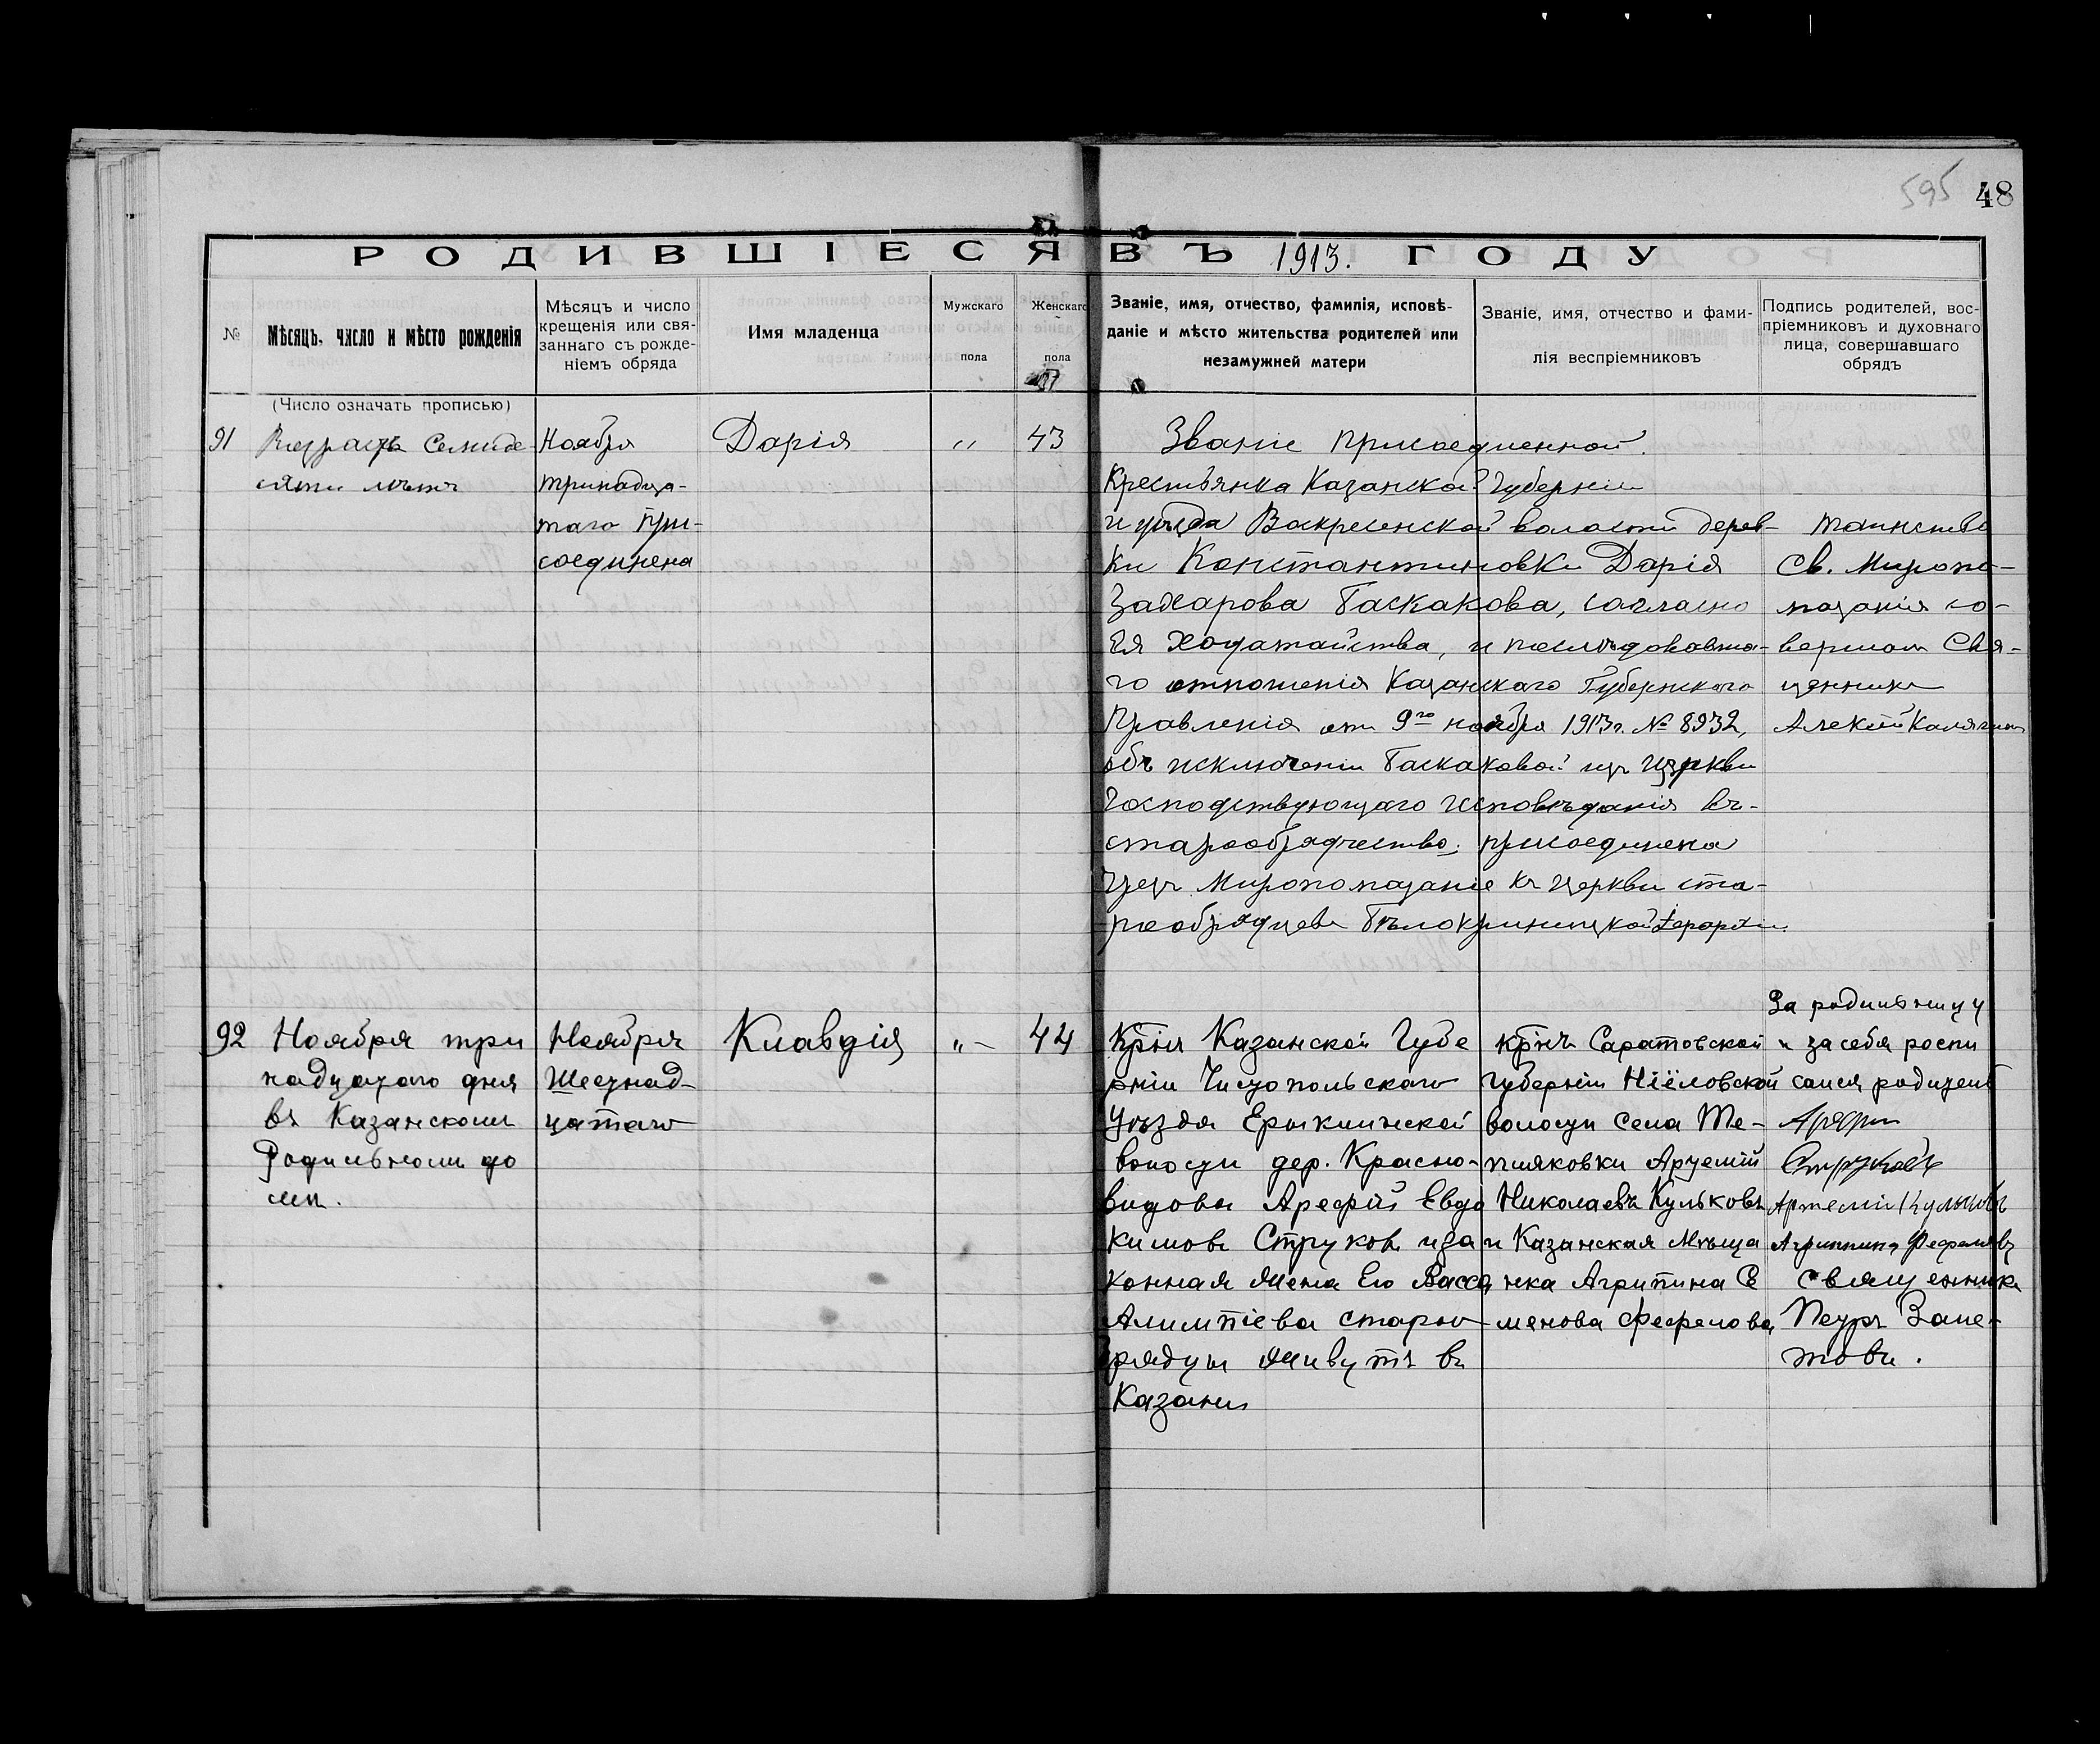 595 48
РОДИВШІЕСЯ ВЪ 1913. ГОДУ
№
Мѣсяцъ, число и мѣсто рожденія
Мѣсяцъ и число
крещенія или свя-
заннаго съ рожде-
ніемъ обряда
Имя младенца
Мужскаго
пола
Женскаго
пола
Званіе, имя, отчество, фамилія, исповѣ-
даніе и мѣсто жительства родителей или
незамужней матери
Званіе, имя, отчество и фами-
лія веспріемниковъ
Подпись родителей, вос-
пріемниковъ и духовнаго
лица, совершавшаго
обрядъ
(Число означать прописью)
91
Возрастъ Семиде-
сяти лѣтъ
Ноября
тринадца-
таго При-
соединена
Дарія
"
43
Званіе присоединенной.
Крестьянка Казанской Губерніи
и уѣзда Воскресенской волости дерев-
ни Константиновки Дарія
Захарова Баскакова, согласно
Ея ходатайства, и послѣдовавша-
го отношенія Казанскаго Губернскаго
Правленія отъ 9го ноября 1913 г. № 8932,
объ исключеніи Баскаковой изъ Церкви
Господствующаго Исповѣданія въ-
старообрядчество; присоединена
чрезъ Миропомазаніе къ церкви ста-
рообрядцевъ Бѣлокриницкой Іерархіи.
таинство
Св. Миропо-
мазанія со-
вершалъ Свя-
щенникъ
Алексій Калягинъ
92
Ноября три
надцатаго дня
въ Казанскомъ
Родильномъ до
мѣ.
Ноября
Шестнад-
цатаго
Клавдія
"-
44
Крнъ Казанской Губе
рніи Чистопольскаго
Уѣзда Ерыклинской
волости дер. Красно-
видова Арефій Евдо
кимовъ Струковъ иза
конная жена Его Васса
Алимпіева старо
рядцы живутъ въ
Казани
крнъ Саратовской
Губерніи Ніёловской
волости Села Те-
пляковки Артемій
Николаевъ Кульковъ
и Казанская Мѣща
нка Агрипина Се
менова Фефелова
За родильницу
и за себя роспи
сался родитель
Арефи
Струковъ
Артемій Кульковъ
Агриппина Фефелова
священникъ
Петръ Зале-
товъ.